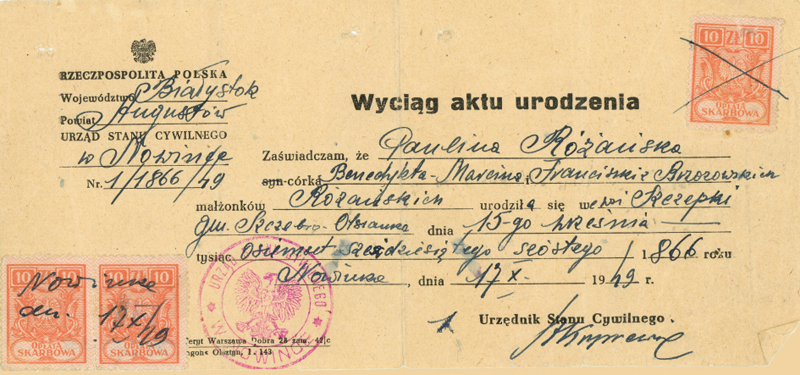 RZECZPOSPOLITA POLSKA
Województwo Białystok
Powiat Augustów
URZĄD STANU CYWILNEGO
w Nowince
Nr. 1/1866/49
10 ZŁ 10
OPŁATA
SKARBOWA
Wyciąg aktu urodzenia
Zaświadczam, że Paulina Różańska
syn-córka Benedykta-Marcina i Franciszki Brzozowskich
małżonków Różańskich urodziła się we wsi Szczepki
gm. Szczebro-Olszanka dnia 15-go września
tysiąc osiemset sześćdziesiątego szóstego / 1866 roku
Nowinka, dnia 17 X 1949 r.
Urzędnik Stanu Cywilnego
10 10
OPŁATA
SKARBOWA
10 ZŁ 10
OPŁATA
SKARBOWA
Nowinka
dn. 17 X/49
Warszawa Dobra 28 zam.
Olsztyn, l. 143